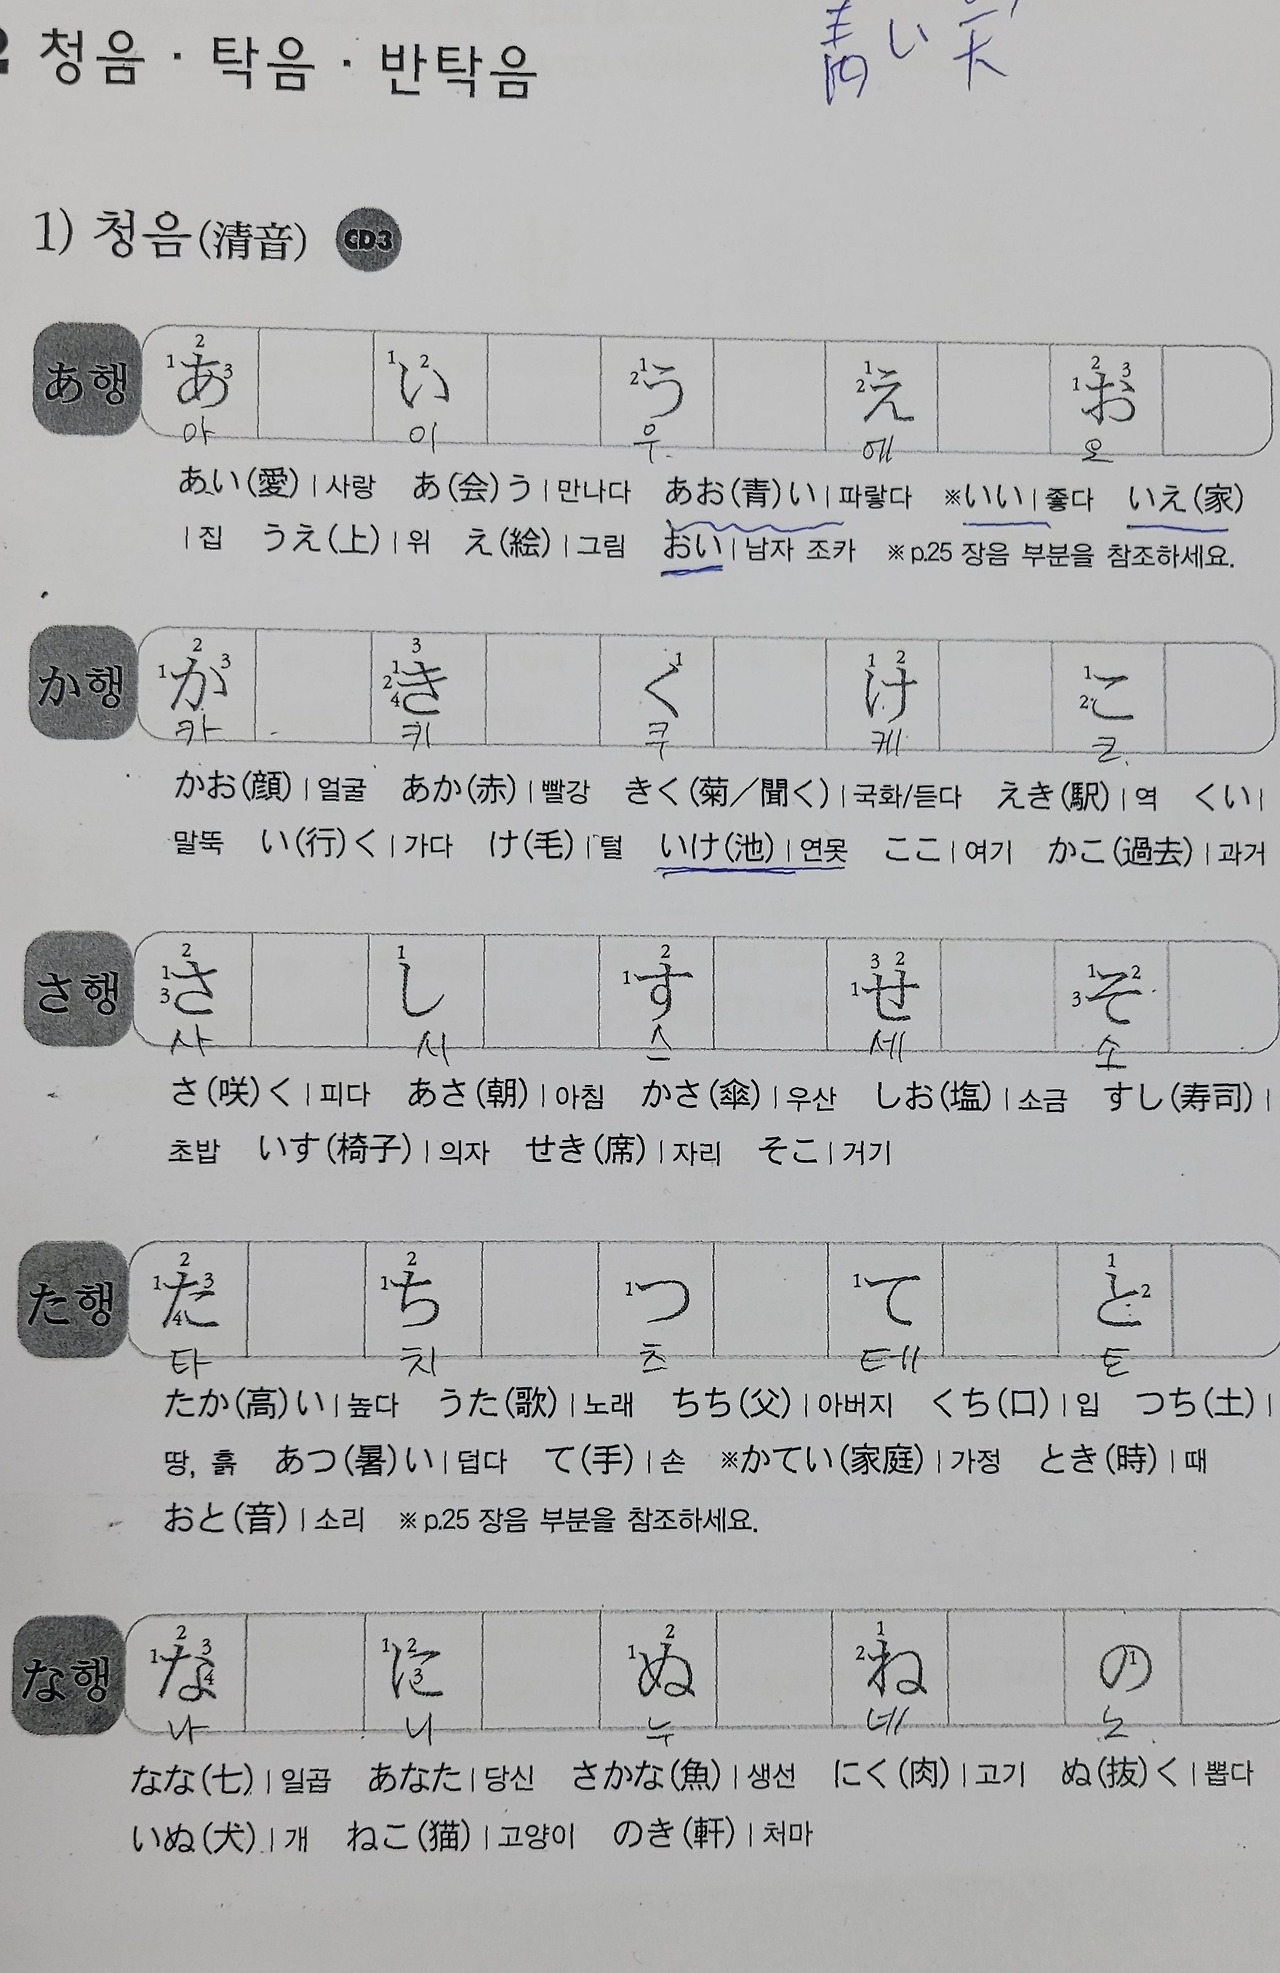 청음 · 탁음 · 반탁음
青い天
1) 청음(清音) CD3
あ행 あ い う え お
아 이 우 에 오
あい(愛) | 사랑 あ(会)う | 만나다 あお(青)い | 파랗다 ※いい | 좋다 いえ(家)
| 집 うえ(上) | 위 え(絵) | 그림 おい | 남자 조카 ※ p.25 장음 부분을 참조하세요.
か행 か き く け こ
카 키 쿠 케 코
かお(顔) | 얼굴 あか(赤) | 빨강 きく(菊／聞く) | 국화/듣다 えき(駅) | 역 くい |
말뚝 い(行)く | 가다 け(毛) | 털 いけ(池) | 연못 ここ | 여기 かこ(過去) | 과거
さ행 さ し す せ そ
사 시 스 세 소
さ(咲)く | 피다 あさ(朝) | 아침 かさ(傘) | 우산 しお(塩) | 소금 すし(寿司) |
초밥 いす(椅子) | 의자 せき(席) | 자리 そこ | 거기
た행 た ち つ て と
타 치 츠 테 토
たか(高)い | 높다 うた(歌) | 노래 ちち(父) | 아버지 くち(口) | 입 つち(土) |
땅, 흙 あつ(暑)い | 덥다 て(手) | 손 ※かてい(家庭) | 가정 とき(時) | 때
おと(音) | 소리 ※ p.25 장음 부분을 참조하세요.
な행 な に ぬ ね の
나 니 누 네 노
なな(七) | 일곱 あなた | 당신 さかな(魚) | 생선 にく(肉) | 고기 ぬ(抜)く | 뽑다
いぬ(犬) | 개 ねこ(猫) | 고양이 のき(軒) | 처마